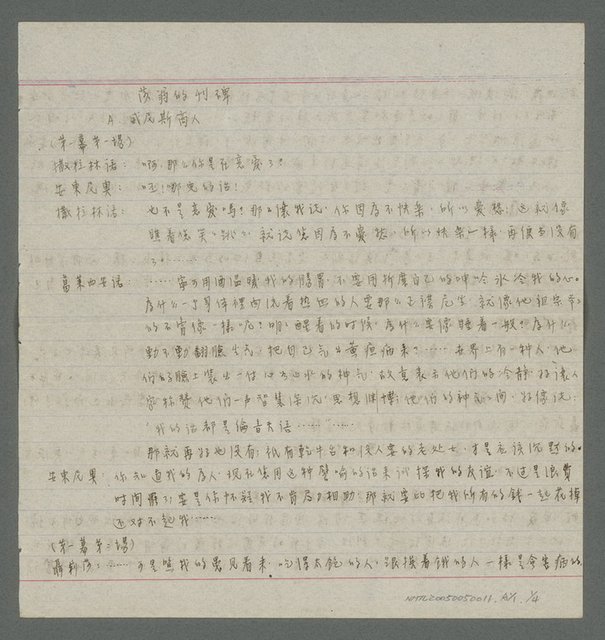 莎翁的竹碑
A 威尼斯商人
(第一幕第一場)
撒拉林諾: 啊,那么你是在戀愛了?
安東尼奧: 呸!哪兒的話!
撒拉林諾: 也不是戀愛嗎?那么讓我說,你因為不快樂,所以憂愁;這就像
瞧著你笑笑跳跳,就說您因為不憂愁,所以快樂一樣,再便當沒有
了。……
葛萊西安諾: ……寧可用酒溫暖我的腸胃,不要用折磨自己的呻吟冰冷我的心。
為什么一个身体裡面流着热血的人要那么正襟危坐,就像他祖宗爷爷
的石膏像一樣呢?明明醒着的时候,為什么要像睡着一般?為什么
動不動翻臉生气,把自己气出黄疸病来?……世界上有一种人,他
们的臉上裝出一付心如止水的神气,故意表示他们的冷静,好讓人
家称赞他们一声智慧深沉,思想渊博;他们的神气之间,好像说:
"我的话都是纶音天语……
那就再好也没有;祇有乾牛舌和没人要的老处女,才是應该沉默的。
安東尼奧: 你知道我的為人,现在您用这种譬喻的话来试探我的友谊,不过是浪费
时间罢了;要是你怀疑我不肯尽力相助,那就要比把我所有的錢一起花掉
还对不起我……
(第一幕第二場)
聶莉莎: ……可是照我的愚见看来,吃得太飽的人,跟挨着饿的人一樣是會害病的
NMTL20050050011 A/1. 1/4